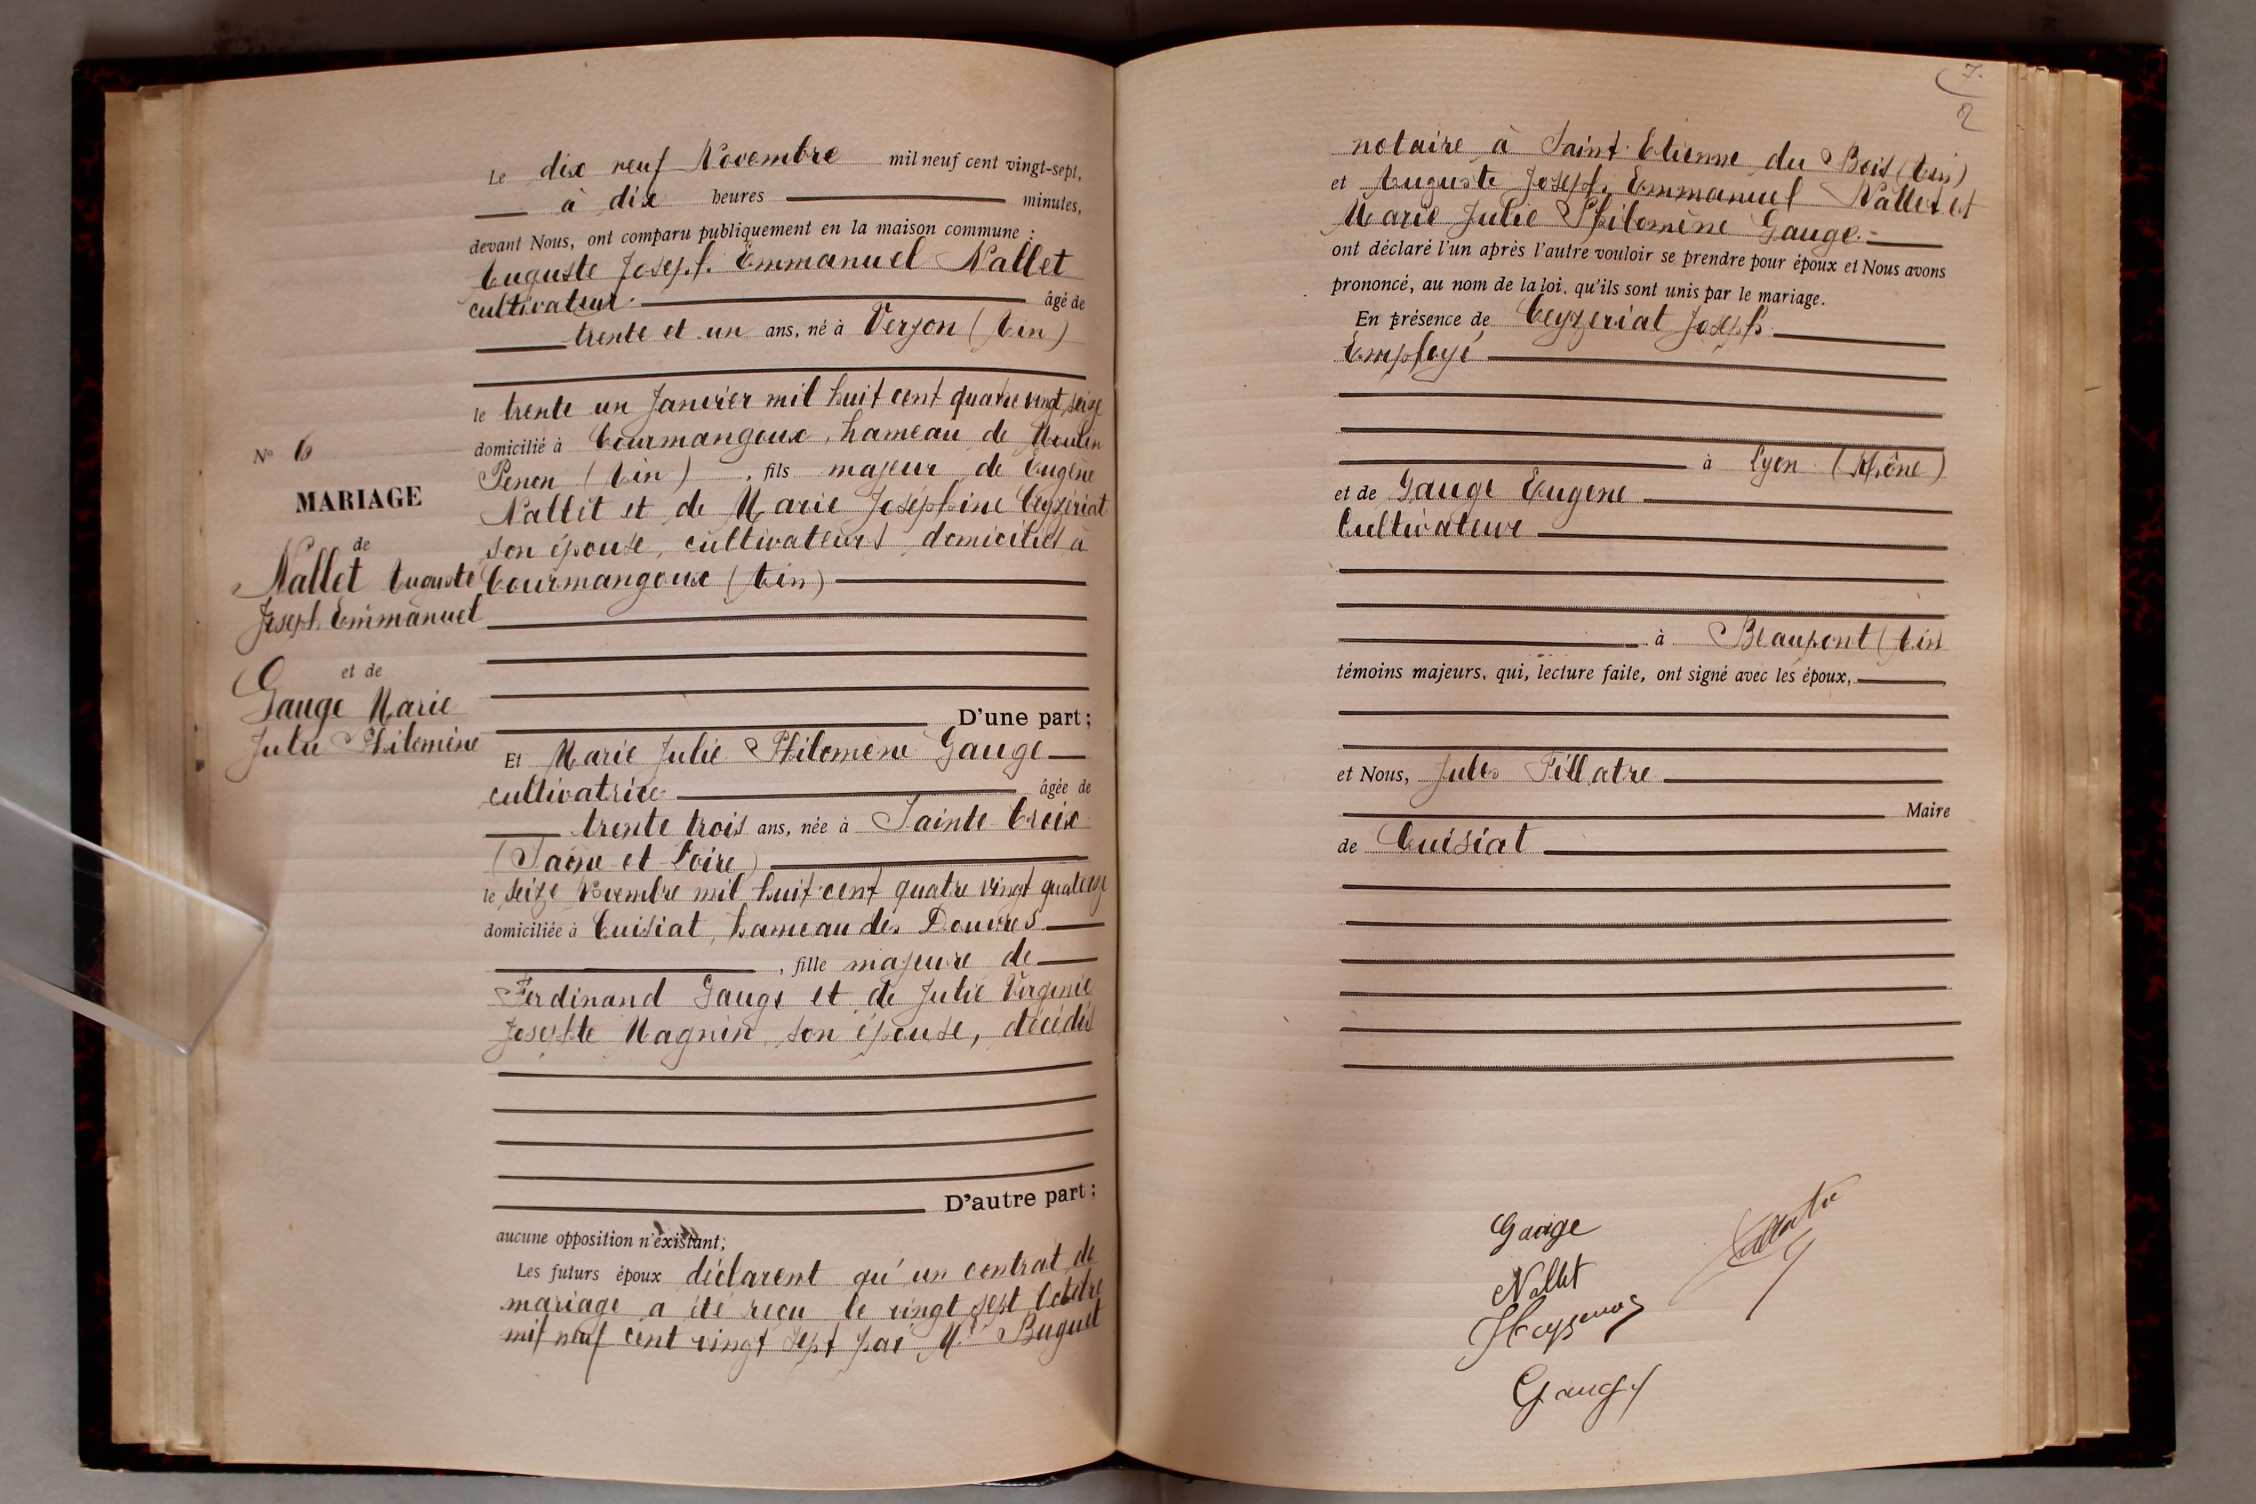 Le dix neuf Novembre mil neuf cent vingt-sept,
à dix heures minutes,
devant Nous, ont comparu publiquement en la maison commune :
Auguste Joseph Emmanuel Nallet
cultivateur âgé de
trente et un ans, né à Verjon (Ain)
le trente un Janvier mil huit cent quatre vingt seize
domicilié à Courmangoux, hameau de Moulin
Penon (Ain), fils majeur de Eugène
Nallet et de Marie Joséphine Ceyzériat
son épouse, cultivateurs domiciliés à
Courmangoux (Ain)
D'une part ;
Et Marie Julie Philomène Gauge
cultivatrice âgée de
trente trois ans, née à Sainte Croix
(Saône et Loire)
le seize Novembre mil huit cent quatre vingt quatorze
domiciliée à Cuisiat, hameau des Douvres
, fille majeure de
Ferdinand Gauge et de Julie Virginie
Josephte Magnin son épouse, décédés
D'autre part ;
aucune opposition n'existant ;
Les futurs époux déclarent qu'un contrat de
mariage a été reçu le vingt sept Octobre
mil neuf cent vingt sept par Me Buguet
N° 6
MARIAGE
de
Nallet Auguste
Joseph Emmanuel
et de
Gauge Marie
Julie Philomène
7
2
notaire à Saint Etienne du Bois (Ain)
et Auguste Joseph Emmanuel Nallet et
Marie Julie Philomène Gauge.
ont déclaré l'un après l'autre vouloir se prendre pour époux et Nous avons
prononcé, au nom de la loi, qu'ils sont unis par le mariage.
En présence de Ceyzeriat Joseph
Employé
à Lyon (Rhône)
et de Gauge Eugène
Cultivateur
à Beaupont (Ain
témoins majeurs, qui, lecture faite, ont signé avec les époux,
et Nous, Jules Fillatre
Maire
de Cuisiat
Gauge
Nallet
Gauge